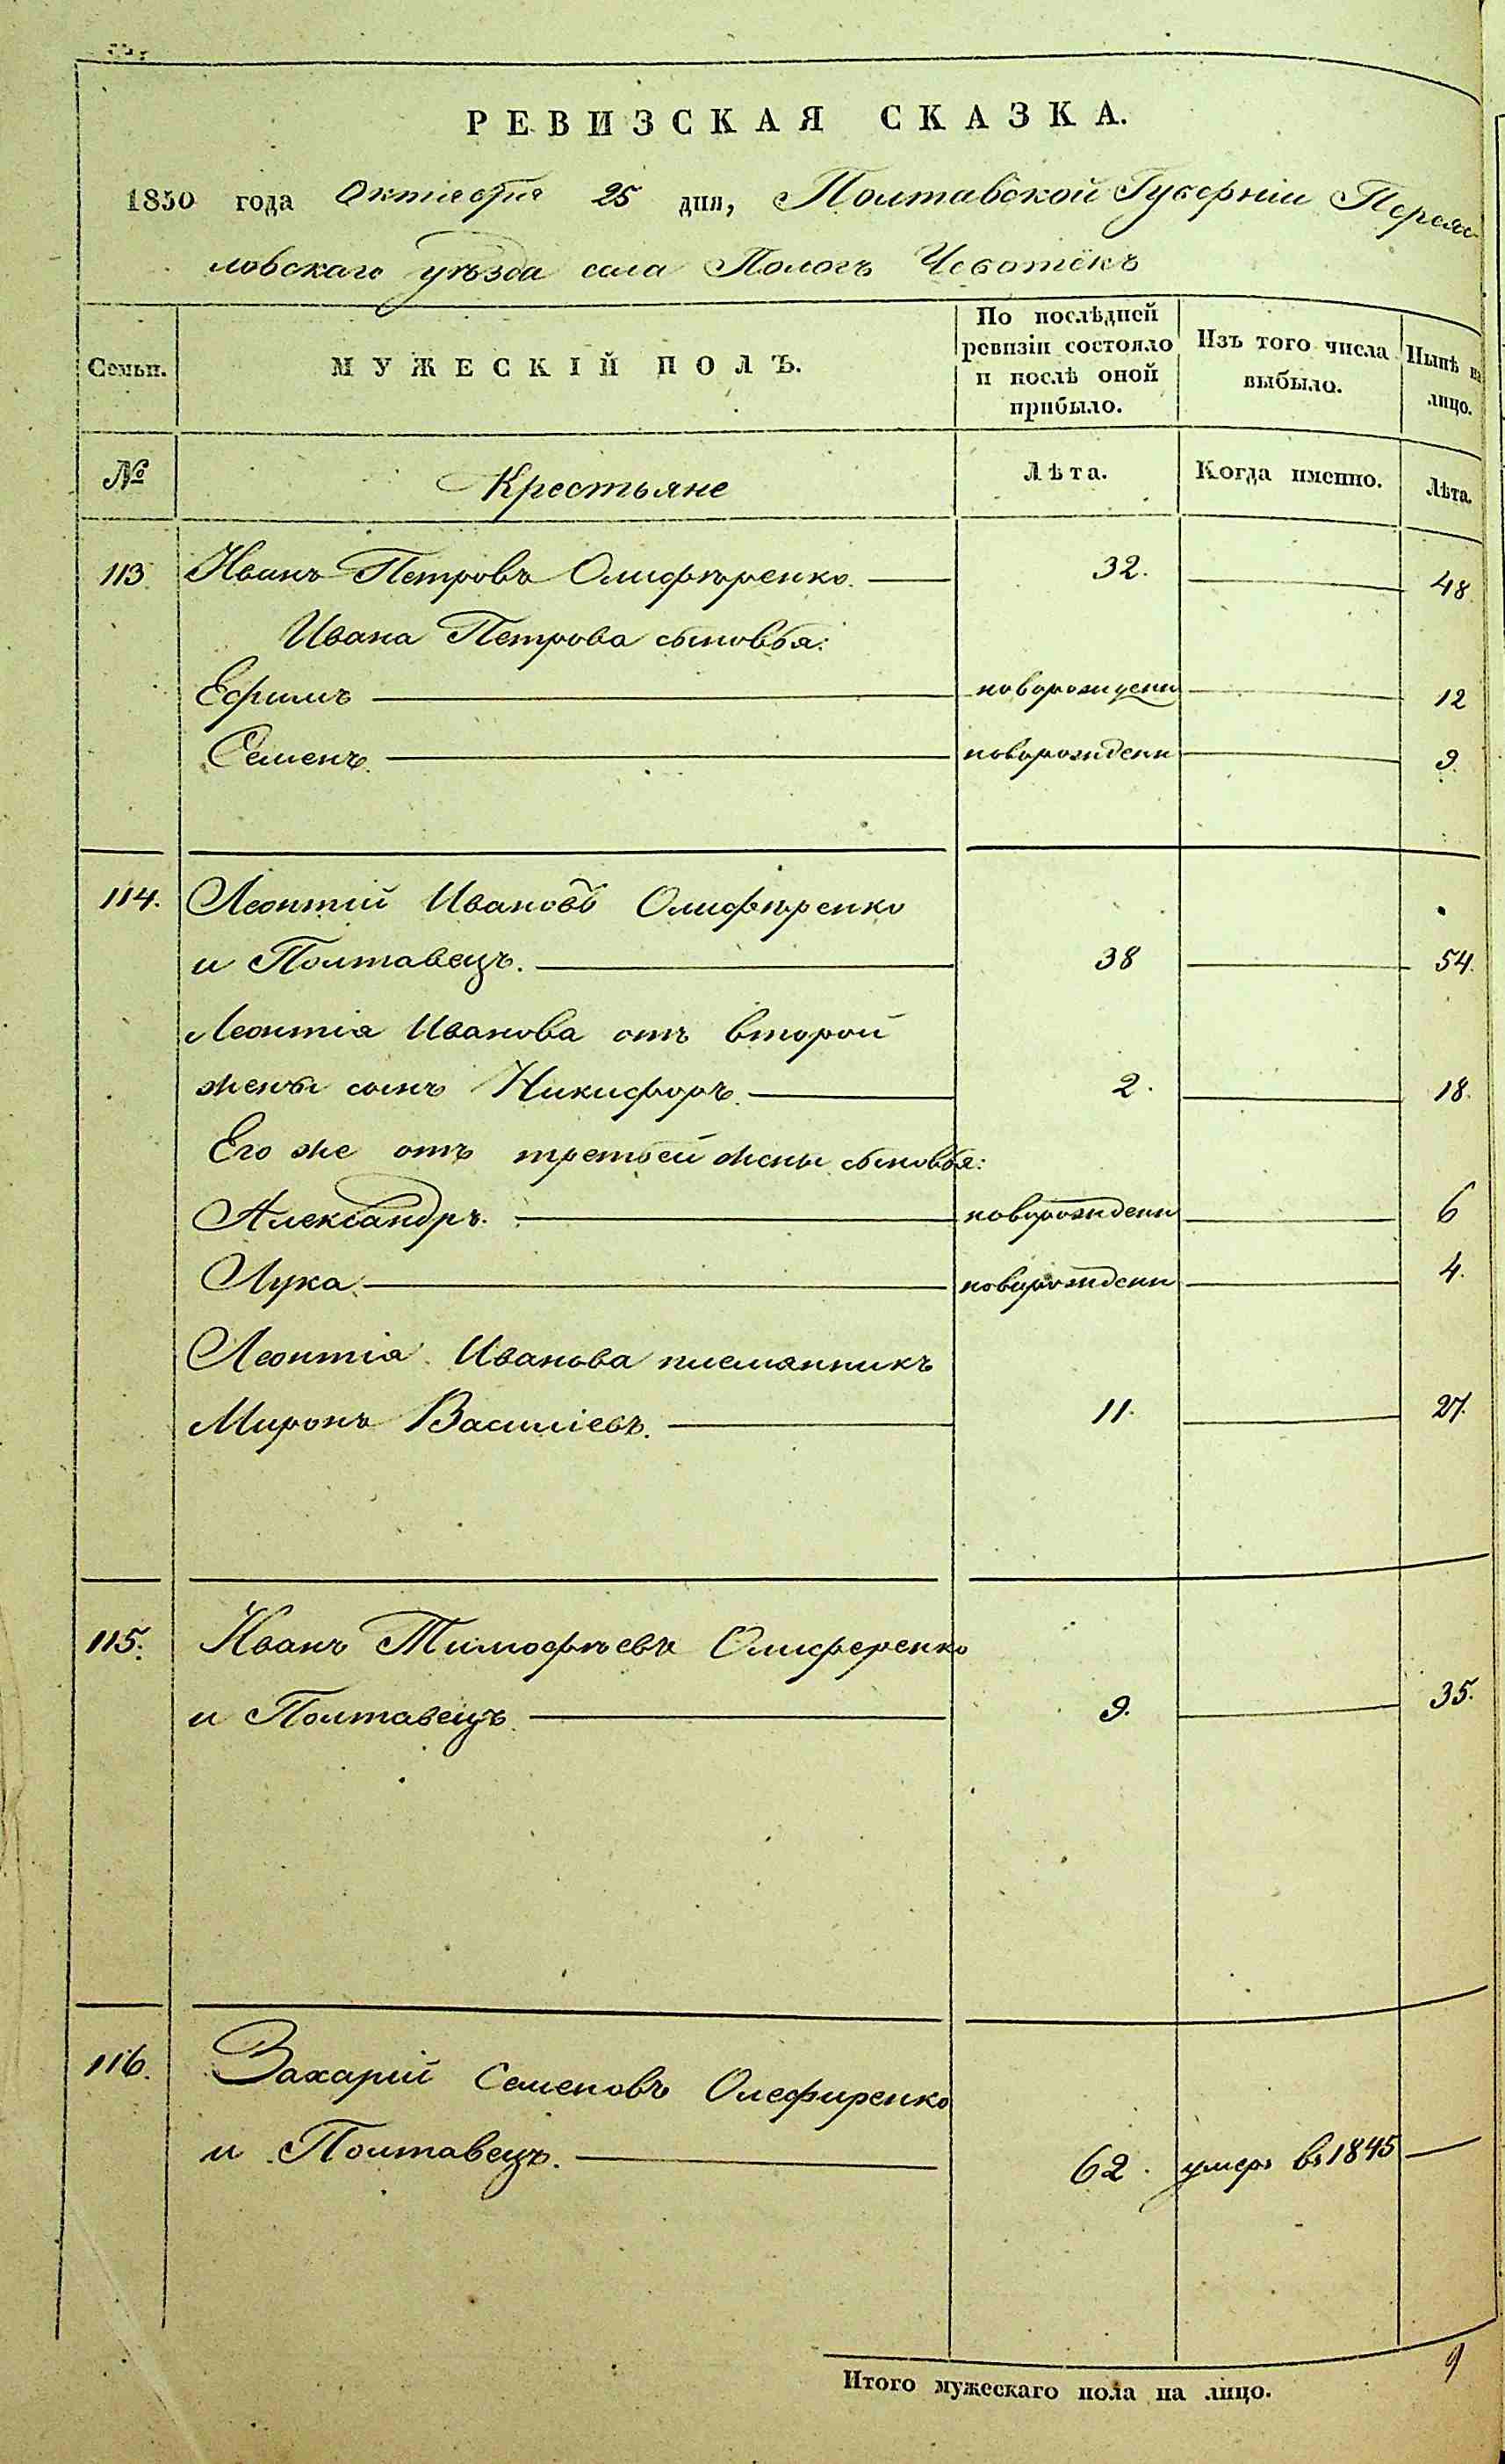 РЕВИЗСКАЯ СКАЗКА.
1850 года Октября 25 дня, Полтавской Губерніи Переяс-
ловскаго уѣзда села Пологъ Чеботёкъ
Семьи. МУЖЕСКІЙ ПОЛЪ. По послѣдней ревизіи состояло и послѣ оной прибыло. Изъ того числа выбыло. Нынѣ на лицо.
№ Крестьяне Лѣта. Когда именно. Лѣта.
113 Иванъ Петровъ Олифѣренко. 32. 48
Ивана Петрова сыновья:
Ефимъ новорожденн 12
Семенъ. новорожденн 9.
114. Леонтій Ивановъ Олифѣренко
и Полтавецъ. 38 54.
Леонтія Иванова отъ второй
жены сынъ Никифоръ. 2. 18.
Его же отъ третьей жены сыновья:
Александръ. новорожденн 6
Лука. новорожденн 4.
Леонтія Иванова племянникъ
Миронъ Василіевъ. 11. 27.
115. Иванъ Тимофѣевъ Олиференко
и Полтавецъ. 9. 35.
116. Захарій Семеновъ Олефиренко
и Полтавецъ. 62. умеръ въ 1845
Итого мужескаго пола на лицо. 9